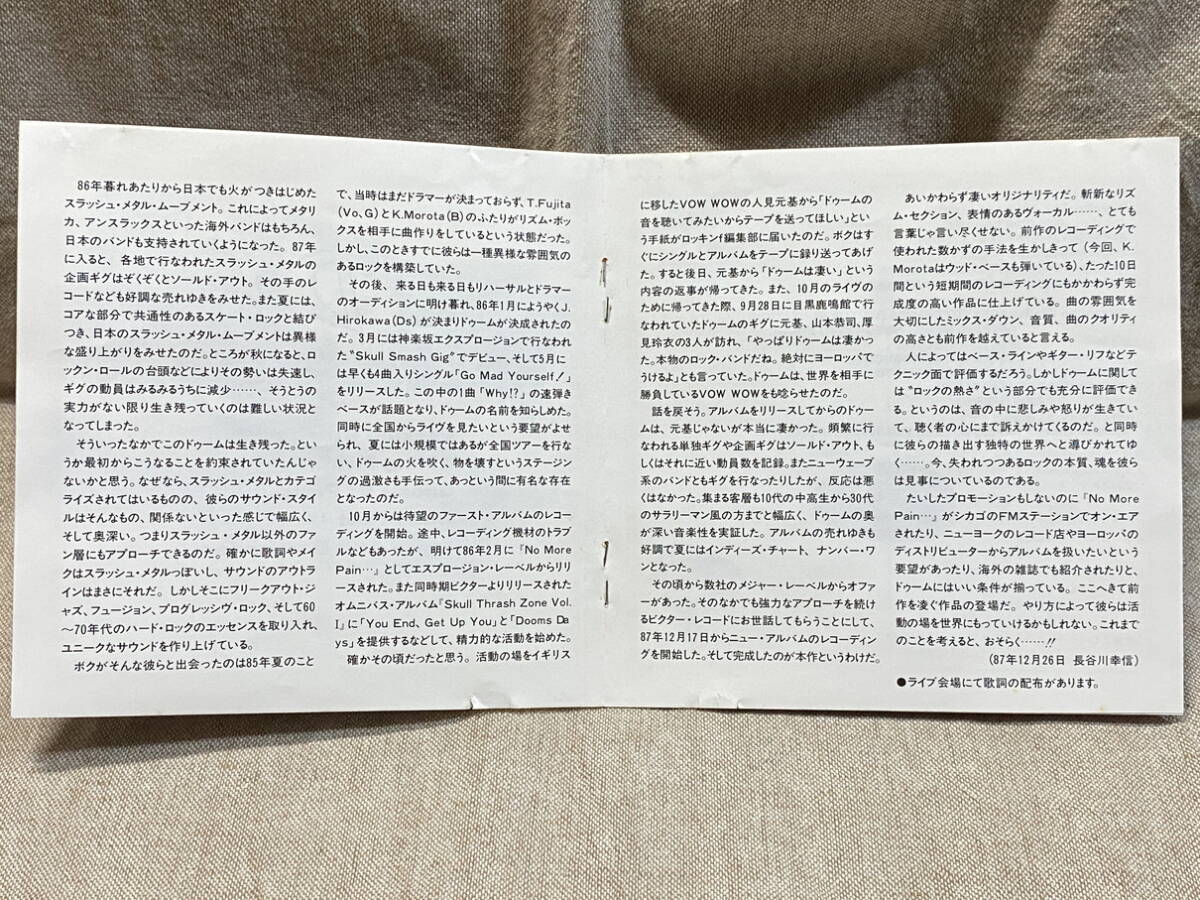 86年暮れあたりから日本でも火がつきはじめた
スラッシュ・メタル・ムーブメント。これによってメタリ
カ、アンスラックスといった海外バンドはもちろん、
日本のバンドも支持されていくようになった。87年
に入ると、各地で行なわれたスラッシュ・メタルの
企画ギグはぞくぞくとソールド・アウト。その手のレ
コードなども好調な売れゆきをみせた。また夏には、
コアな部分で共通性のあるスケート・ロックと結び
つき、日本のスラッシュ・メタル・ムーブメントは異様
な盛り上がりをみせたのだ。ところが秋になると、ロ
ックン・ロールの台頭などによりその勢いは失速し、
ギグの動員はみるみるうちに減少……、そうとうの
実力がない限り生き残っていくのは難しい状況と
なってしまった。
そういったなかでこのドゥームは生き残った。とい
うか最初からこうなることを約束されていたんじゃ
ないかと思う。なぜなら、スラッシュ・メタルとカテゴ
ライズされてはいるものの、彼らのサウンド・スタイ
ルはそんなもの、関係ないといった感じで幅広く、
そして奥深い。つまりスラッシュ・メタル以外のファ
ン層にもアプローチできるのだ。確かに歌詞やメイ
クはスラッシュ・メタルっぽいし、サウンドのアウトラ
インはまさにそれだ。しかしそこにフリークアウト・ジ
ャズ、フュージョン、プログレッシヴ・ロック、そして60
〜70年代のハード・ロックのエッセンスを取り入れ、
ユニークなサウンドを作り上げている。
ボクがそんな彼らと出会ったのは85年夏のこと
で、当時はまだドラマーが決まっておらず、T.Fujita
(Vo,G)とK.Morota(B)のふたりがリズム・ボッ
クスを相手に曲作りをしているという状態だった。
しかし、このときすでに彼らは一種異様な雰囲気の
あるロックを構築していた。
その後、来る日も来る日もリハーサルとドラマー
のオーディションに明け暮れ、86年1月にようやくJ.
Hirokawa(Ds)が決まりドゥームが決成されたの
だ。3月には神楽坂エクスプロージョンで行なわれ
た“Skull Smash Gig”でデビュー、そして5月に
は早くも4曲入りシングル「Go Mad Yourself!」
をリリースした。この中の1曲「Why!?」の速弾き
ベースが話題となり、ドゥームの名前を知らしめた。
同時に全国からライヴを見たいという要望がよせ
られ、夏には小規模ではあるが全国ツアーを行な
い、ドゥームの火を吹く、物を壊すというステージン
グの過激さも手伝って、あっという間に有名な存在
となったのだ。
10月からは待望のファースト・アルバムのレコー
ディングを開始。途中、レコーディング機材のトラブ
ルなどもあったが、明けて86年2月に『No More
Pain…』としてエスプロージョン・レーベルからリリ
ースされた。また同時期ビクターよりリリースされた
オムニバス・アルバム『Skull Thrash Zone Vol.
I』に「You End, Get Up You」と「Dooms Da
ys」を提供するなどして、精力的な活動を始めた。
確かその頃だったと思う。活動の場をイギリス
に移したVOW WOWの人見元基から「ドゥームの
音を聴いてみたいからテープを送ってほしい」とい
う手紙がロッキンf編集部に届いたのだ。ボクはす
ぐにシングルとアルバムをテープに録り送ってあげ
た。すると後日、元基から「ドゥームは凄い」という
内容の返事が帰ってきた。また、10月のライヴの
ために帰ってきた際、9月28日に目黒鹿鳴館で行
なわれていたドゥームのギグに元基、山本恭司、厚
見玲衣の3人が訪れ、「やっぱりドゥームは凄かっ
た。本物のロック・バンドだね。絶対にヨーロッパで
うけるよ」とも言っていた。ドゥームは、世界を相手に
勝負しているVOW WOWをも唸らせたのだ。
話を戻そう。アルバムをリリースしてからのドゥー
ムは、元基じゃないが本当に凄かった。頻繁に行
なわれる単独ギグや企画ギグはソールド・アウト、も
しくはそれに近い動員数を記録。またニューウェーブ
系のバンドともギグを行なったりしたが、反応は悪
くはなかった。集まる客層も10代の中高生から30代
のサラリーマン風の方までと幅広く、ドゥームの奥
が深い音楽性を実証した。アルバムの売れゆきも
好調で夏にはインディーズ・チャート、ナンバー・ワ
ンとなった。
その頃から数社のメジャー・レーベルからオファ
ーがあった。そのなかでも強力なアプローチを続け
るビクター・レコードにお世話してもらうことにして、
87年12月17日からニュー・アルバムのレコーディン
グを開始した。そして完成したのが本作というわけだ。
あいかわらず凄いオリジナリティだ。斬新なリズ
ム・セクション、表情のあるヴォーカル……、とても
言葉じゃ言い尽くせない。前作のレコーディングで
使われた数かずの手法を生かしきって(今回、K.
Morotaはウッド・ベースも弾いている)、たった10日
間という短期間のレコーディングにもかかわらず完
成度の高い作品に仕上げている。曲の雰囲気を
大切にしたミックス・ダウン、音質、曲のクオリティ
の高さとも前作を越えていると言える。
人によってはベース・ラインやギター・リフなどテ
クニック面で評価するだろう。しかしドゥームに関して
は“ロックの熱さ”という部分でも充分に評価でき
る。というのは、音の中に悲しみや怒りが生きてい
て、聴く者の心にまで訴えかけてくるのだ。と同時
に彼らの描き出す独特の世界へと導びかれてゆ
く……。今、失われつつあるロックの本質、魂を彼ら
は見事についているのである。
たいしたプロモーションもしないのに『No More
Pain…』がシカゴのFMステーションでオン・エア
されたり、ニューヨークのレコード店やヨーロッパの
ディストリビューターからアルバムを扱いたいという
要望があったり、海外の雑誌でも紹介されたりと、
ドゥームにはいい条件が揃っている。ここへきて前
作を凌ぐ作品の登場だ。やり方によって彼らは活
動の場を世界にもっていけるかもしれない。これまで
のことを考えると、おそらく……!!
(87年12月26日 長谷川幸信)
●ライブ会場にて歌詞の配布があります。